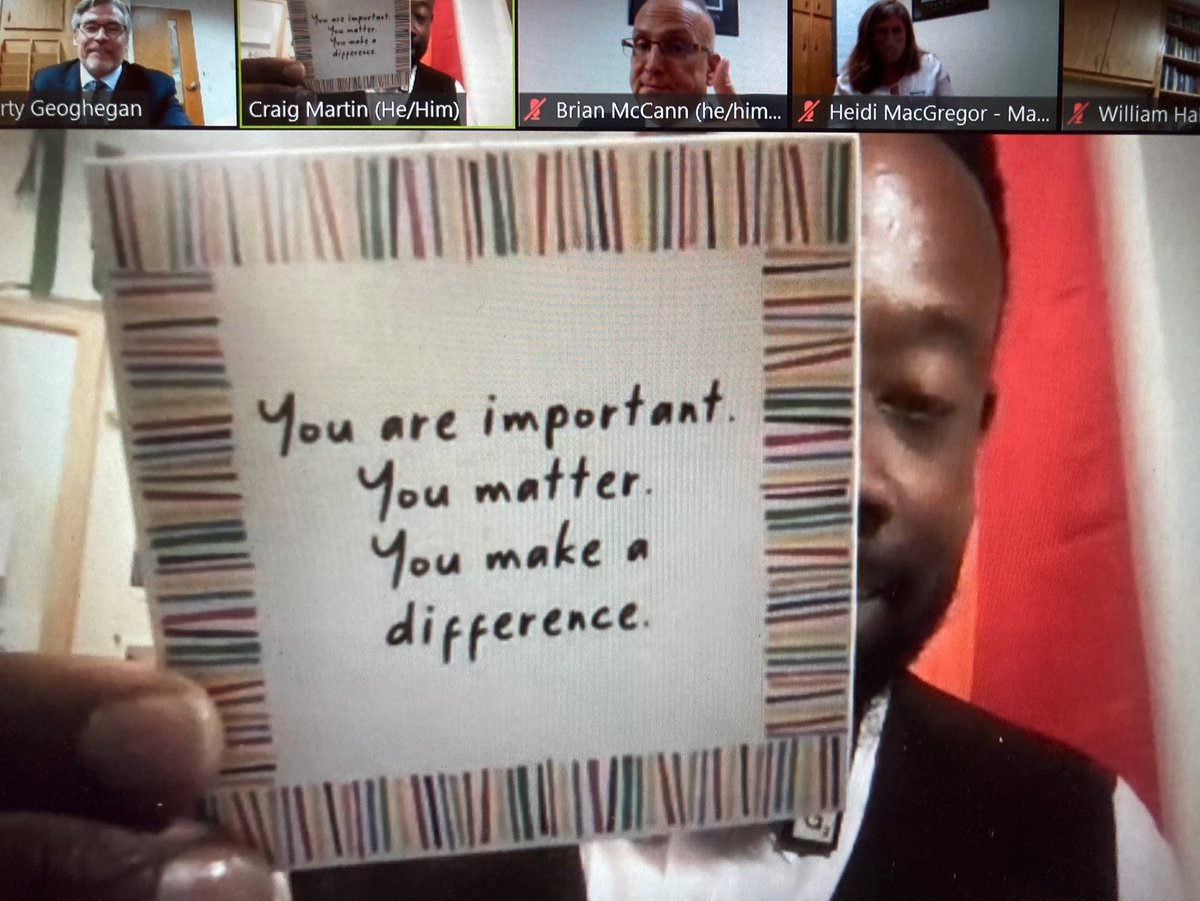 rty Geoghegan
Craig Martin (He/Him)
Brian McCann (he/him...
Heidi MacGregor - Ma...
William Ha
You are important.
You matter.
You make a
difference.
You are important.
You matter.
You make a
difference.